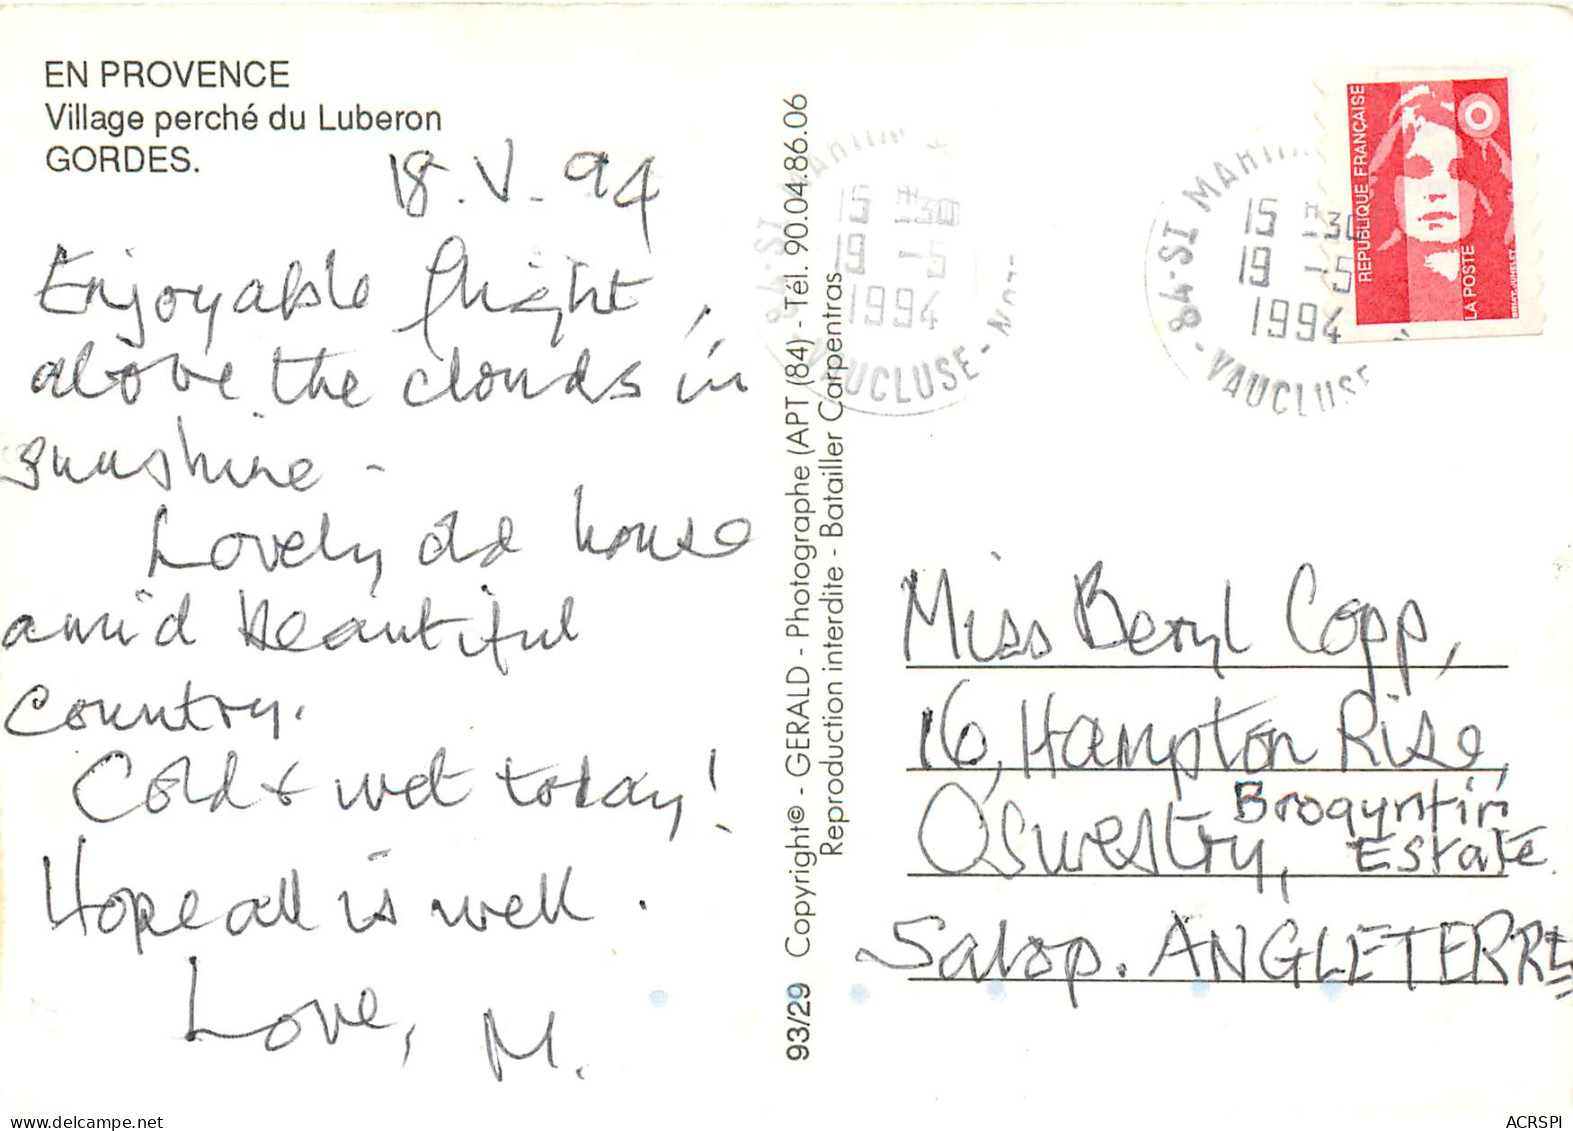 EN PROVENCE
Village perché du Luberon
GORDES.
18.V.94
Enjoyable flight,
above the clouds in
sunshine -
Lovely old house
amid beautiful
country.
Cold & wet today!
Hope all is well.
Love,
M.
93/29 Copyright© - GERALD - Photographe (APT (84) - Tél. 90.04.86.06
Reproduction interdite - Batailler Carpentras
84-ST MARTIN
15 H30
19 -5
1994
VAUCLUSE
84-ST MARTIN
15 H30
19 -5
1994
VAUCLUSE
REPUBLIQUE FRANÇAISE
LA POSTE
Miss Beryl Copp,
16, Hampton Rise,
Brogyntin
Oswestry, Estate.
Salop. ANGLETERRE
www.delcampe.net
ACRSPI